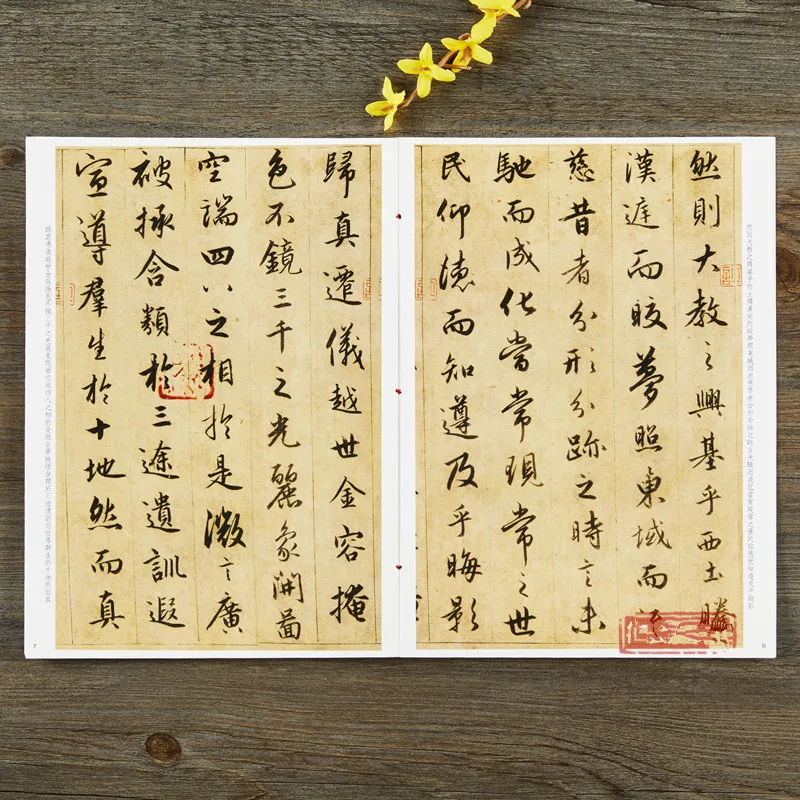 然則大教之興基乎西土騰
漢庭而皎夢照東域而
慈昔者分形分跡之時言未
馳而成化當常現常之世
民仰德而知遵及乎晦影
6
歸真遷儀越世金容掩
色不鏡三千之光麗象開圖
空端四八之相於是微言廣
被拯含類於三途遺訓遐
宣導羣生於十地然而真
7